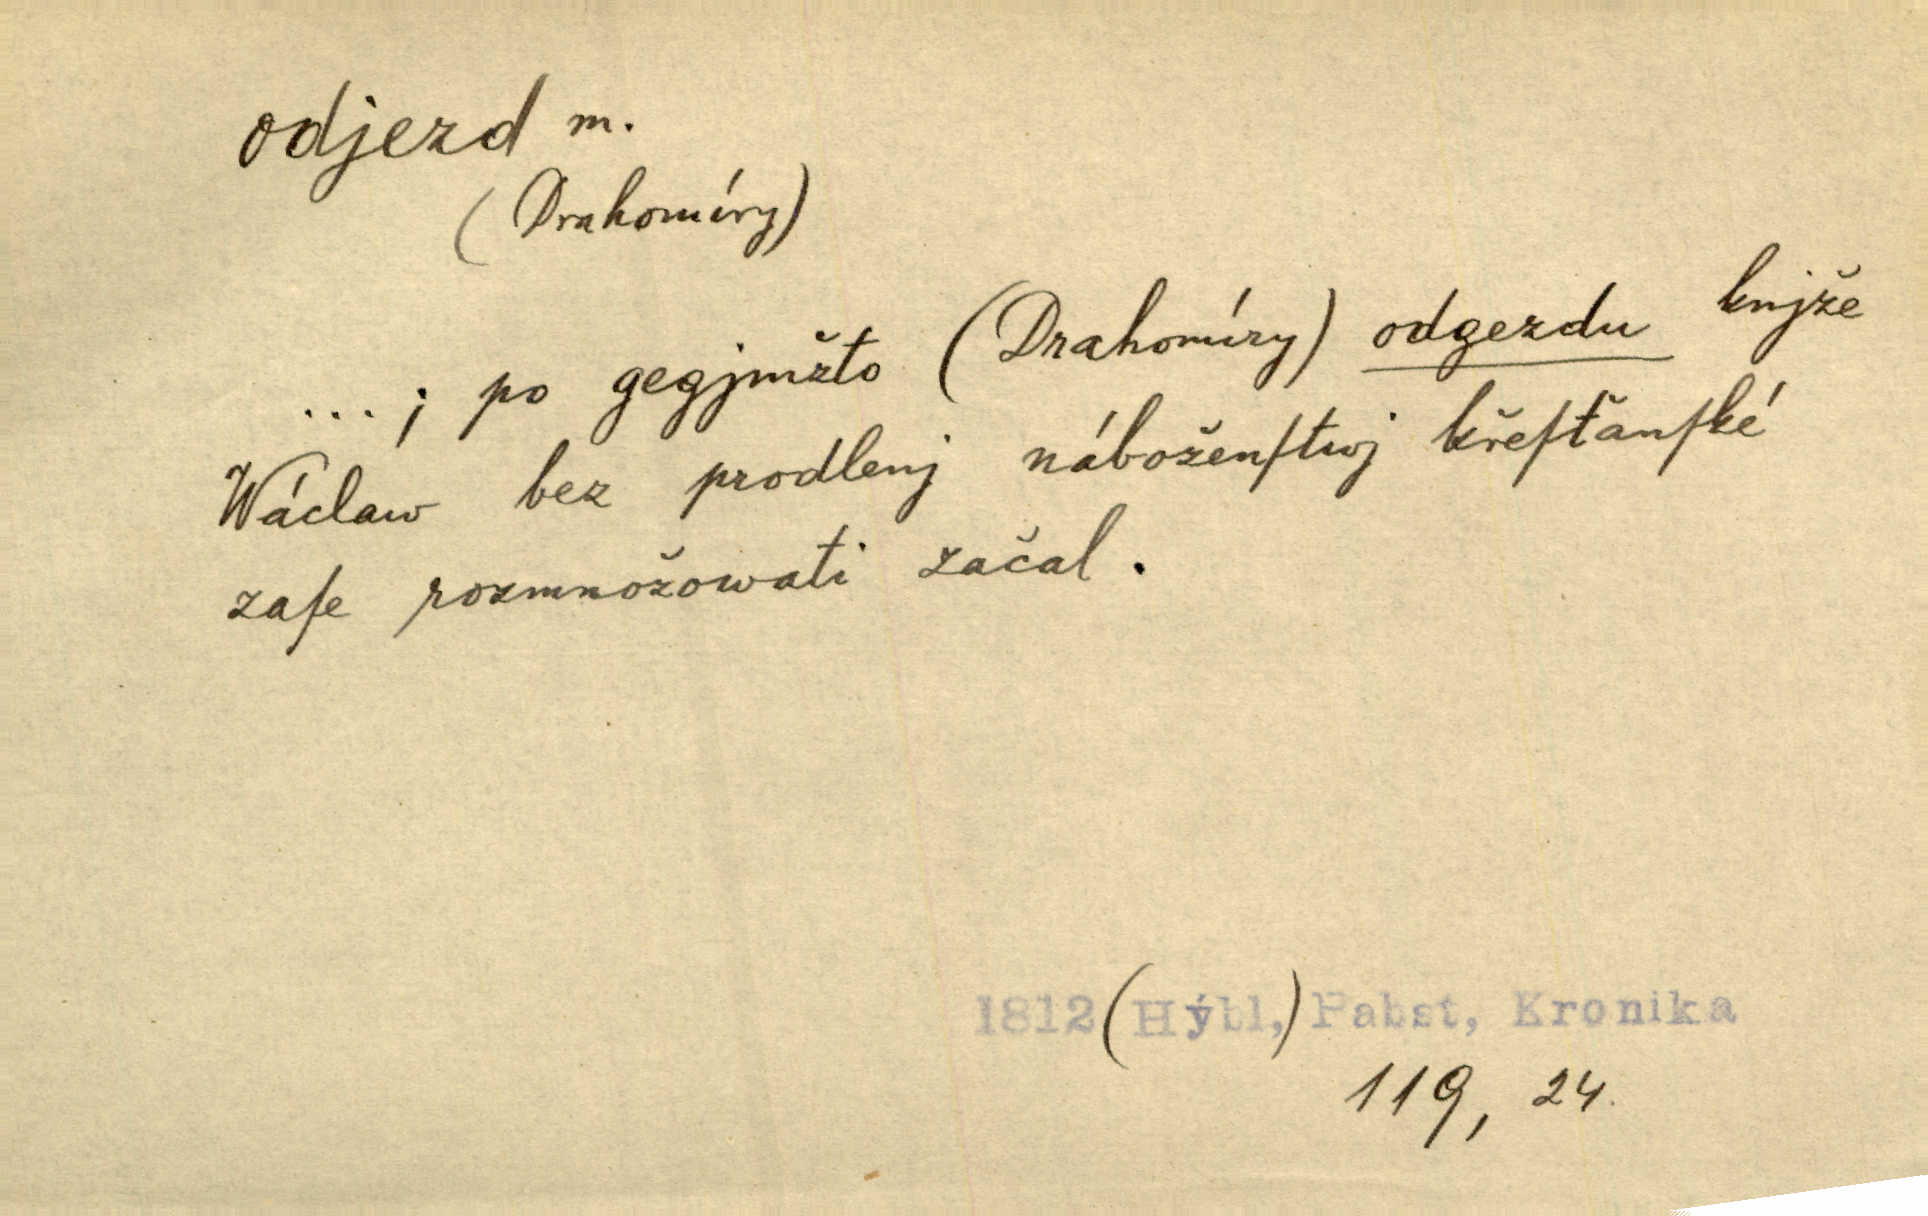 odjezd m.
(Drahomíry)
...; po gegjmžto (Drahomíry) odgezdu knjže
Wáclaw bez prodlenj náboženſtwj křeſťanſké
zaſe rozmnožowati začal.
1812 (Hýbl,) Pabst, Kronika
119, 24.